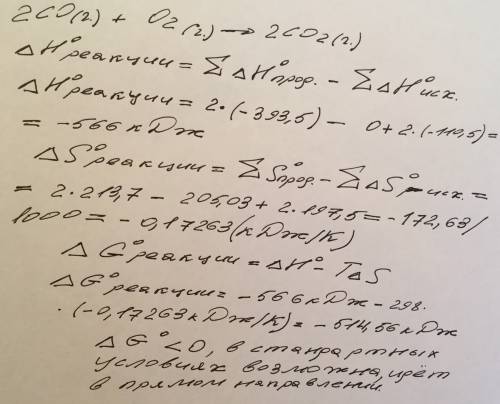 2CO(г.) + O2(г.) → 2CO2(г.)
ΔH°реакции = ΣΔH°прод. – ΣΔH°исх.
ΔH°реакции = 2·(-393,5) – 0+2·(-110,5)=
= -566 кДж
ΔS°реакции = ΣS°прод. – ΣΔS°исх. =
= 2·213,7 – 205,03 + 2·197,5 = -172,63/
1000 = -0,17263 (кДж/К)
ΔG°реакции = ΔH° – TΔS
ΔG°реакции = -566 кДж – 298·
·(-0,17263 кДж/К) = -514,56 кДж
ΔG°<0, в стандартных
условиях возможна, идёт
в прямом направлении.